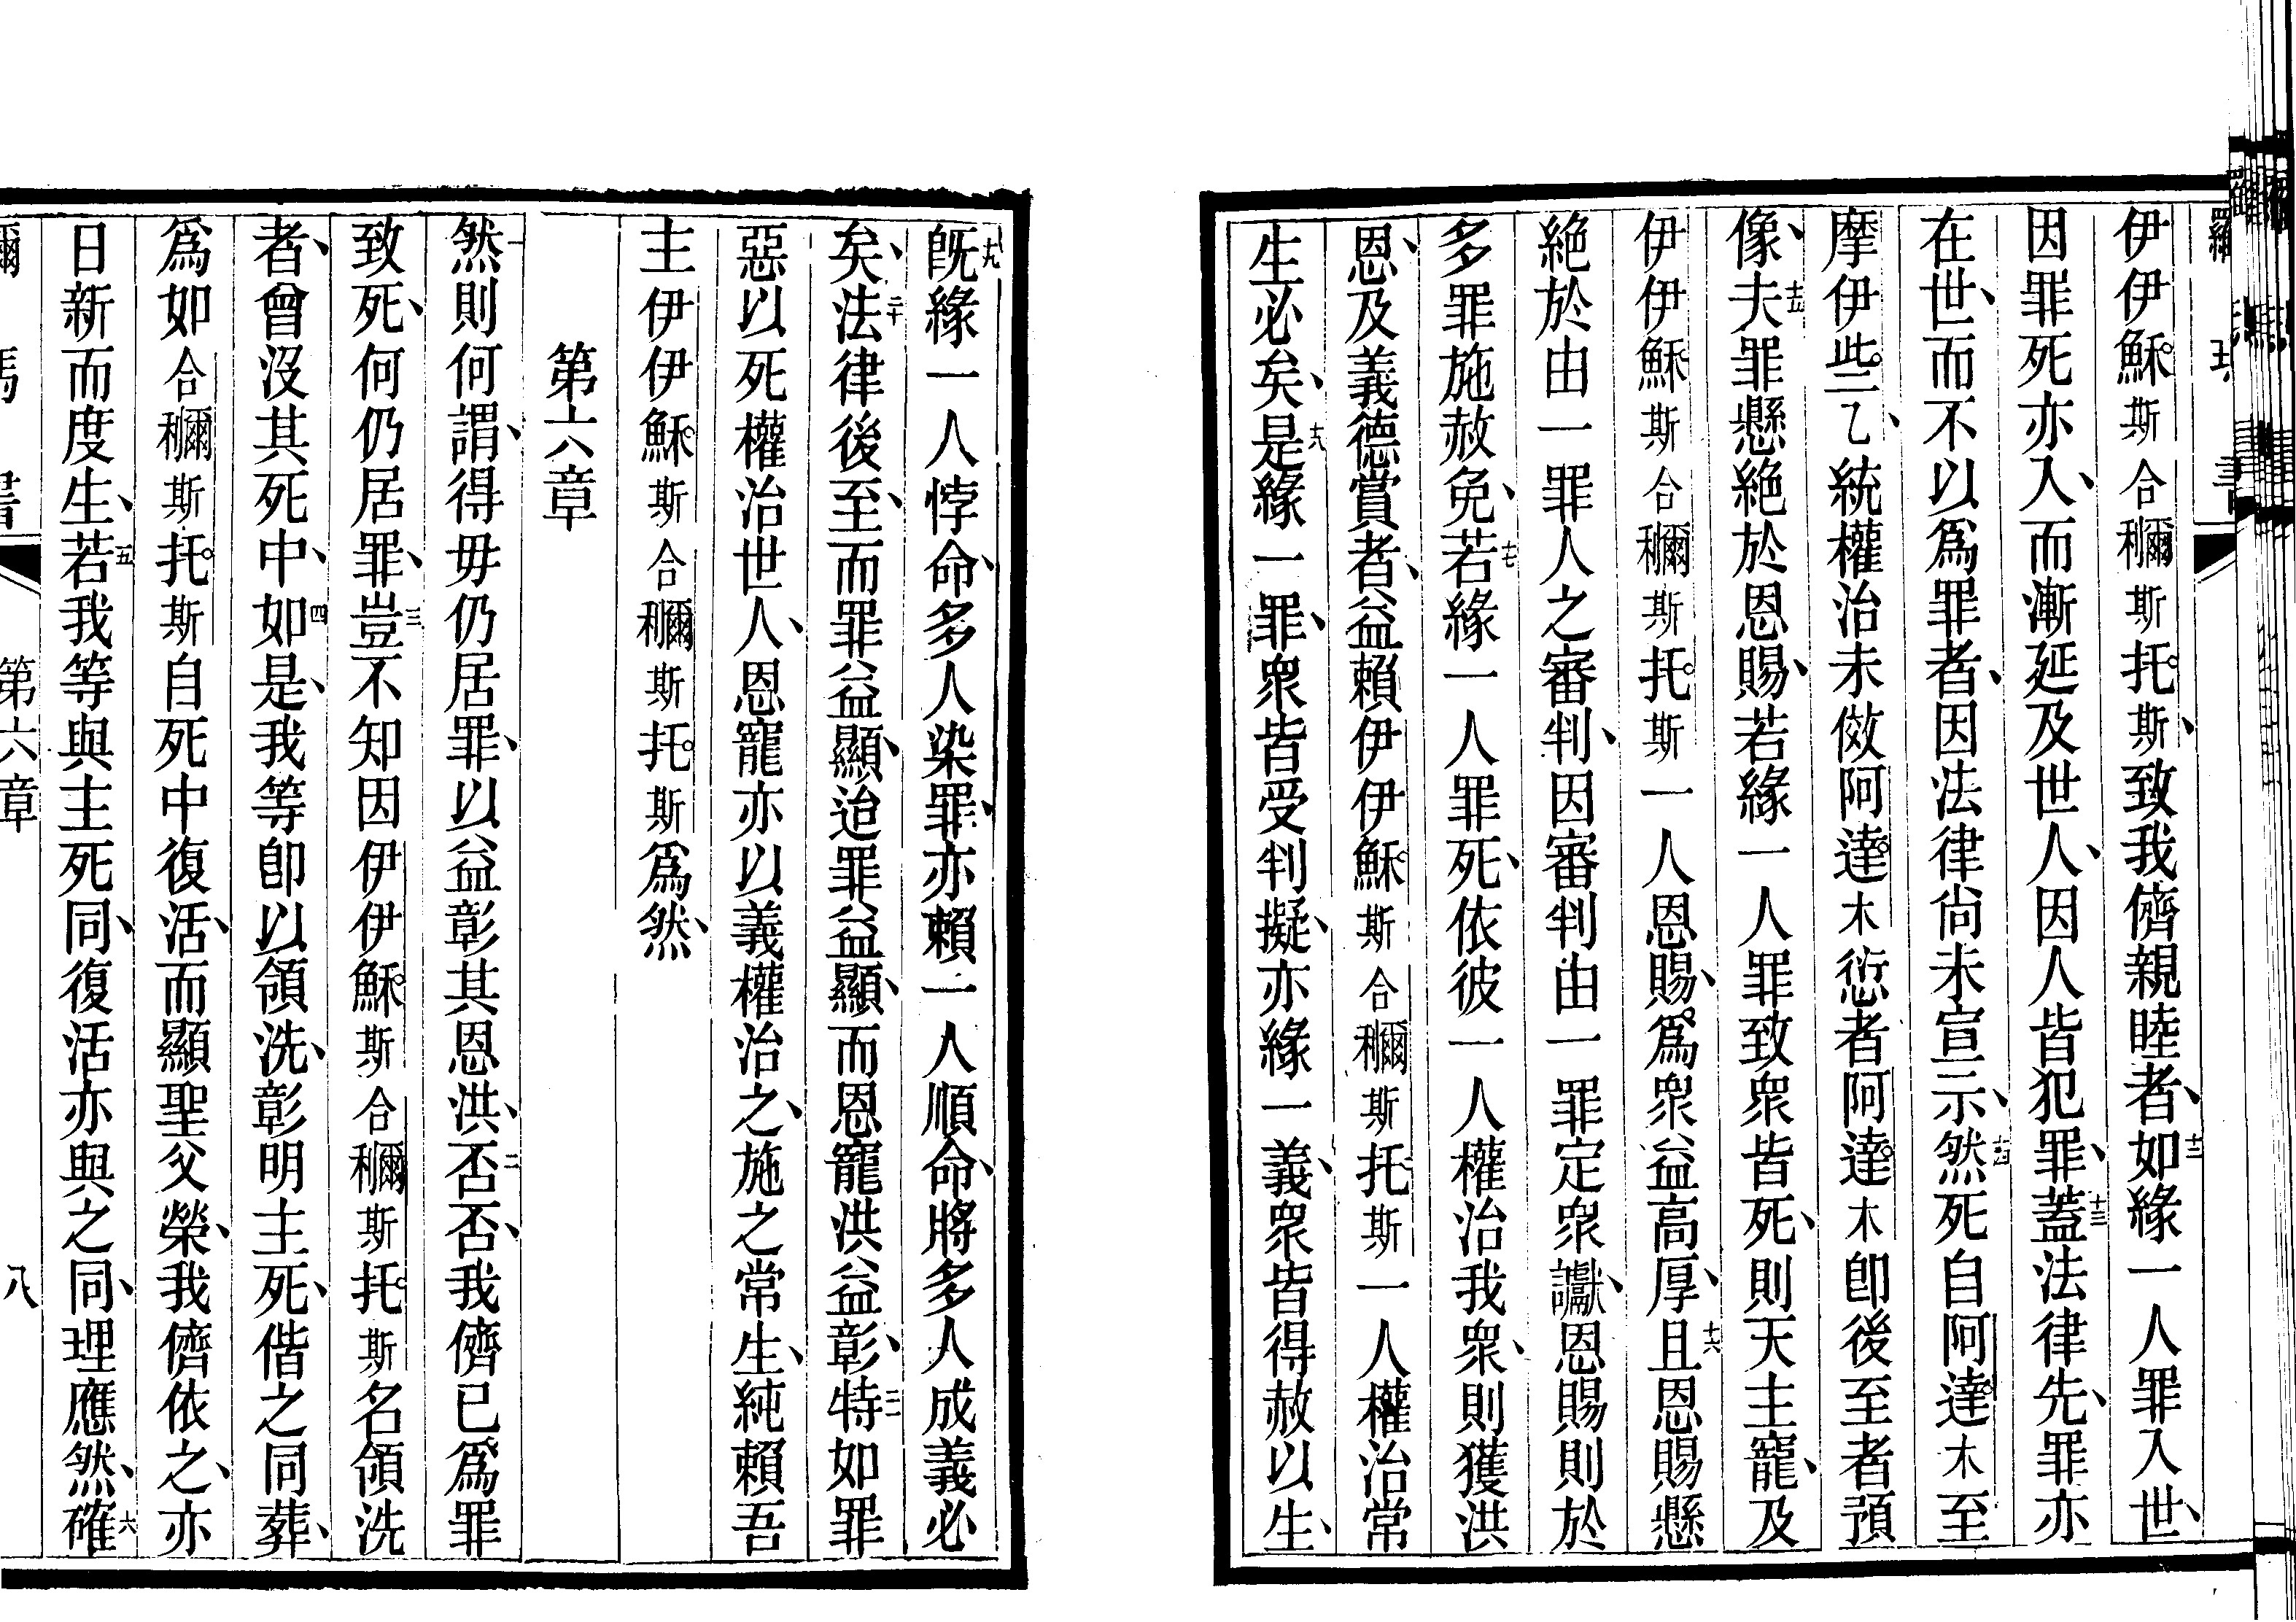 伊伊穌斯合穪斯托斯、致我儕親睦者、十二如緣一人罪入世、
因罪死亦入、而漸延及世人、因人皆犯罪、十三蓋法律先、罪亦
在世、而不以爲罪者、因法律尙未宣示、十四然死自阿達木至
摩伊些乙、統權治未傚阿達木愆者阿達木卽後至者預
像、十五夫罪懸絶於恩賜、若緣一人罪致衆皆死、則天主寵、及
伊伊穌斯合穪斯托斯一人恩賜、爲衆益高厚、十六且恩賜懸
絶於由一罪人之審判、因審判由一罪定衆讞、恩賜則於
多罪施赦免、十七若緣一人罪死、依彼一人權治我衆、則獲洪
恩、及義德賞者、益賴伊伊穌斯合穪斯托斯一人權治常
生必矣、十八是緣一罪、衆皆受判擬、亦緣一義、衆皆得赦以生、
十九旣緣一人悖命、多人染罪、亦賴一人順命、將多人成義必
矣、二十法律後至、而罪益顯、迨罪益顯、而恩寵洪益彰、二一特如罪
惡以死權治世人、恩寵亦以義權治之、施之常生、純賴吾
主伊伊穌斯合穪斯托斯爲然、
第六章
一然則何謂、得毋仍居罪、以益彰其恩洪、二否否、我儕已爲罪
致死、何仍居罪、三豈不知因伊伊穌斯合穪斯托斯名領洗
者、曾沒其死中、四如是、我等卽以領洗、彰明主死、偕之同葬、
爲如合穪斯托斯自死中復活、而顯聖父榮、我儕依之、亦
日新而度生、五若我等與主死同、復活亦與之同、理應然、六確
第六章
八